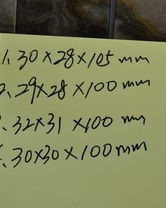 1、30×28×105 mm
2、29×28×100 mm
3、32×31×100 mm
4、30×30×100mm